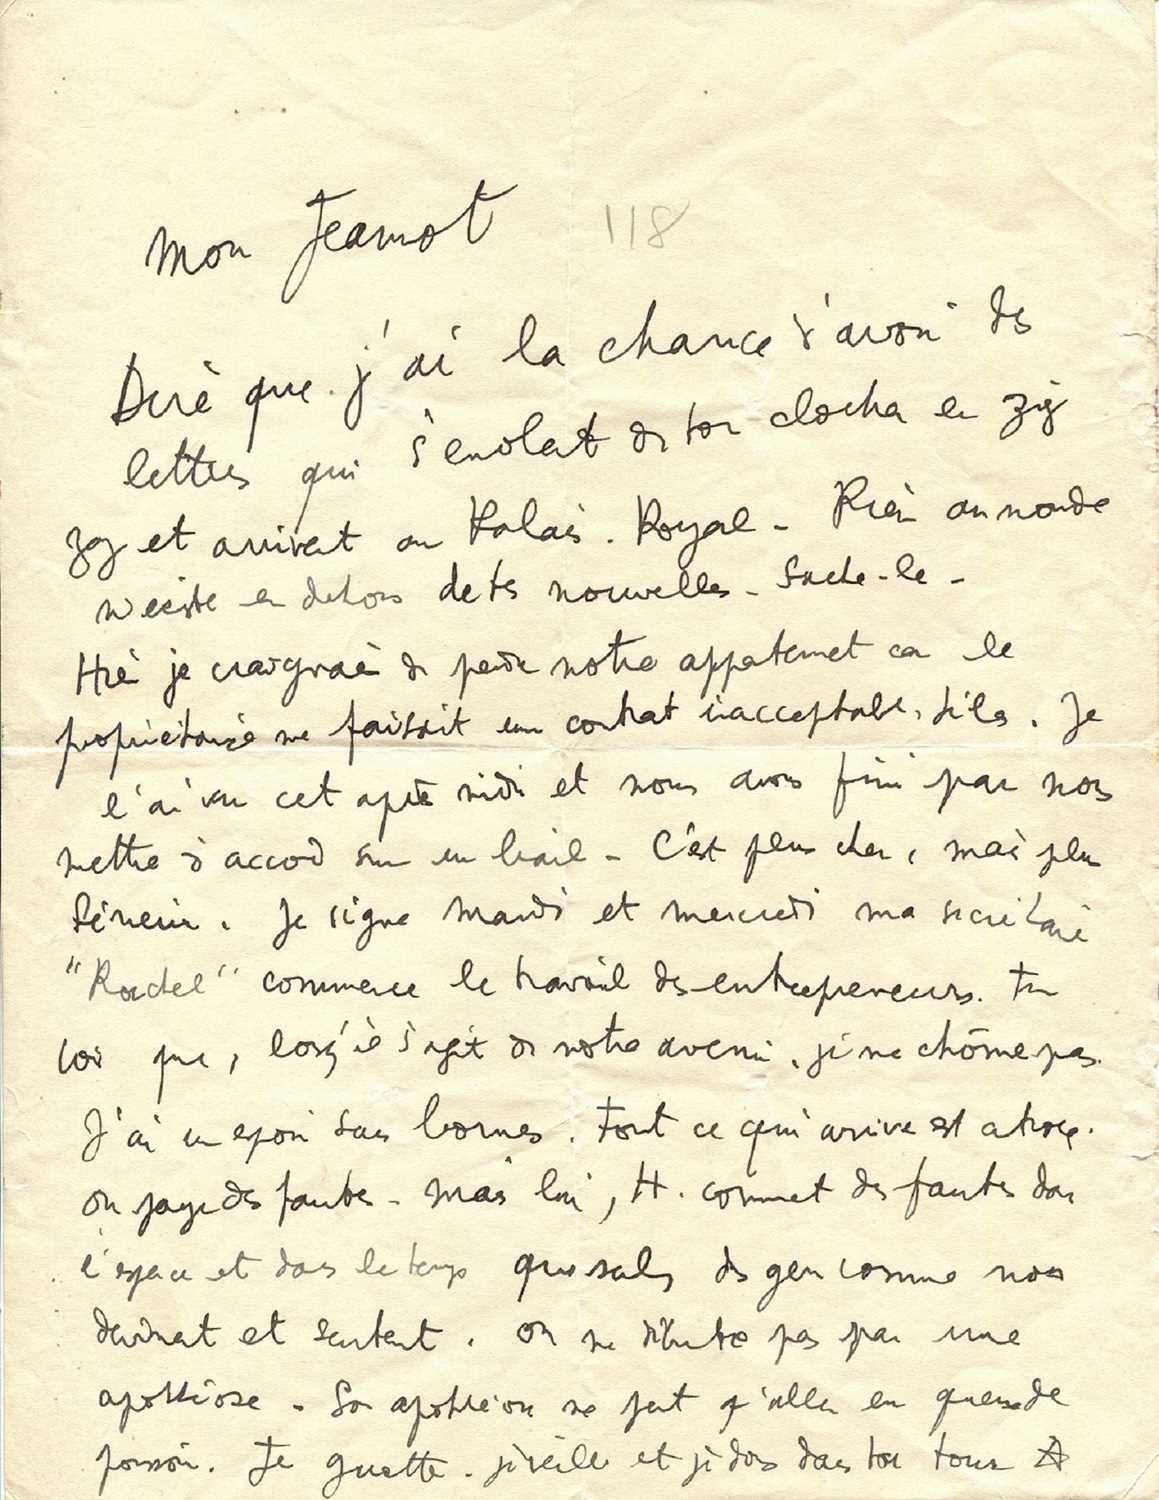 Mon Jeannot 118
Dire que j'ai la chance d'avoir des
lettres qui s'envolent de ton clocher en zig
zag et arrivent au Palais-Royal – Rien au monde
n'existe en dehors de tes nouvelles – Sache-le –
Hier je craignais de perdre notre appartement car le
propriétaire me faisait un contrat inacceptable. Je
l'ai vu cet après midi et nous avons fini par nous
mettre d'accord sur un bail – C'est plus cher, mais plus
sérieux. Je signe Mardi et mercredi ma secrétaire
"Rachel" commence le travail des entrepreneurs. Tu
vois que, lorsqu'il s'agit de notre avenir, je ne chôme pas.
J'ai un espoir sans bornes. Tout ce qui arrive est atroce.
On paye des fautes – Mais lui, H. commet des fautes dans
l'espace et dans le temps que seuls des gens comme nous
devinent et sentent. On ne débute pas par une
apothéose – Son apothéose ne peut qu'aller en queue de
poisson. Je guette. je veille et je dors dans ton tour